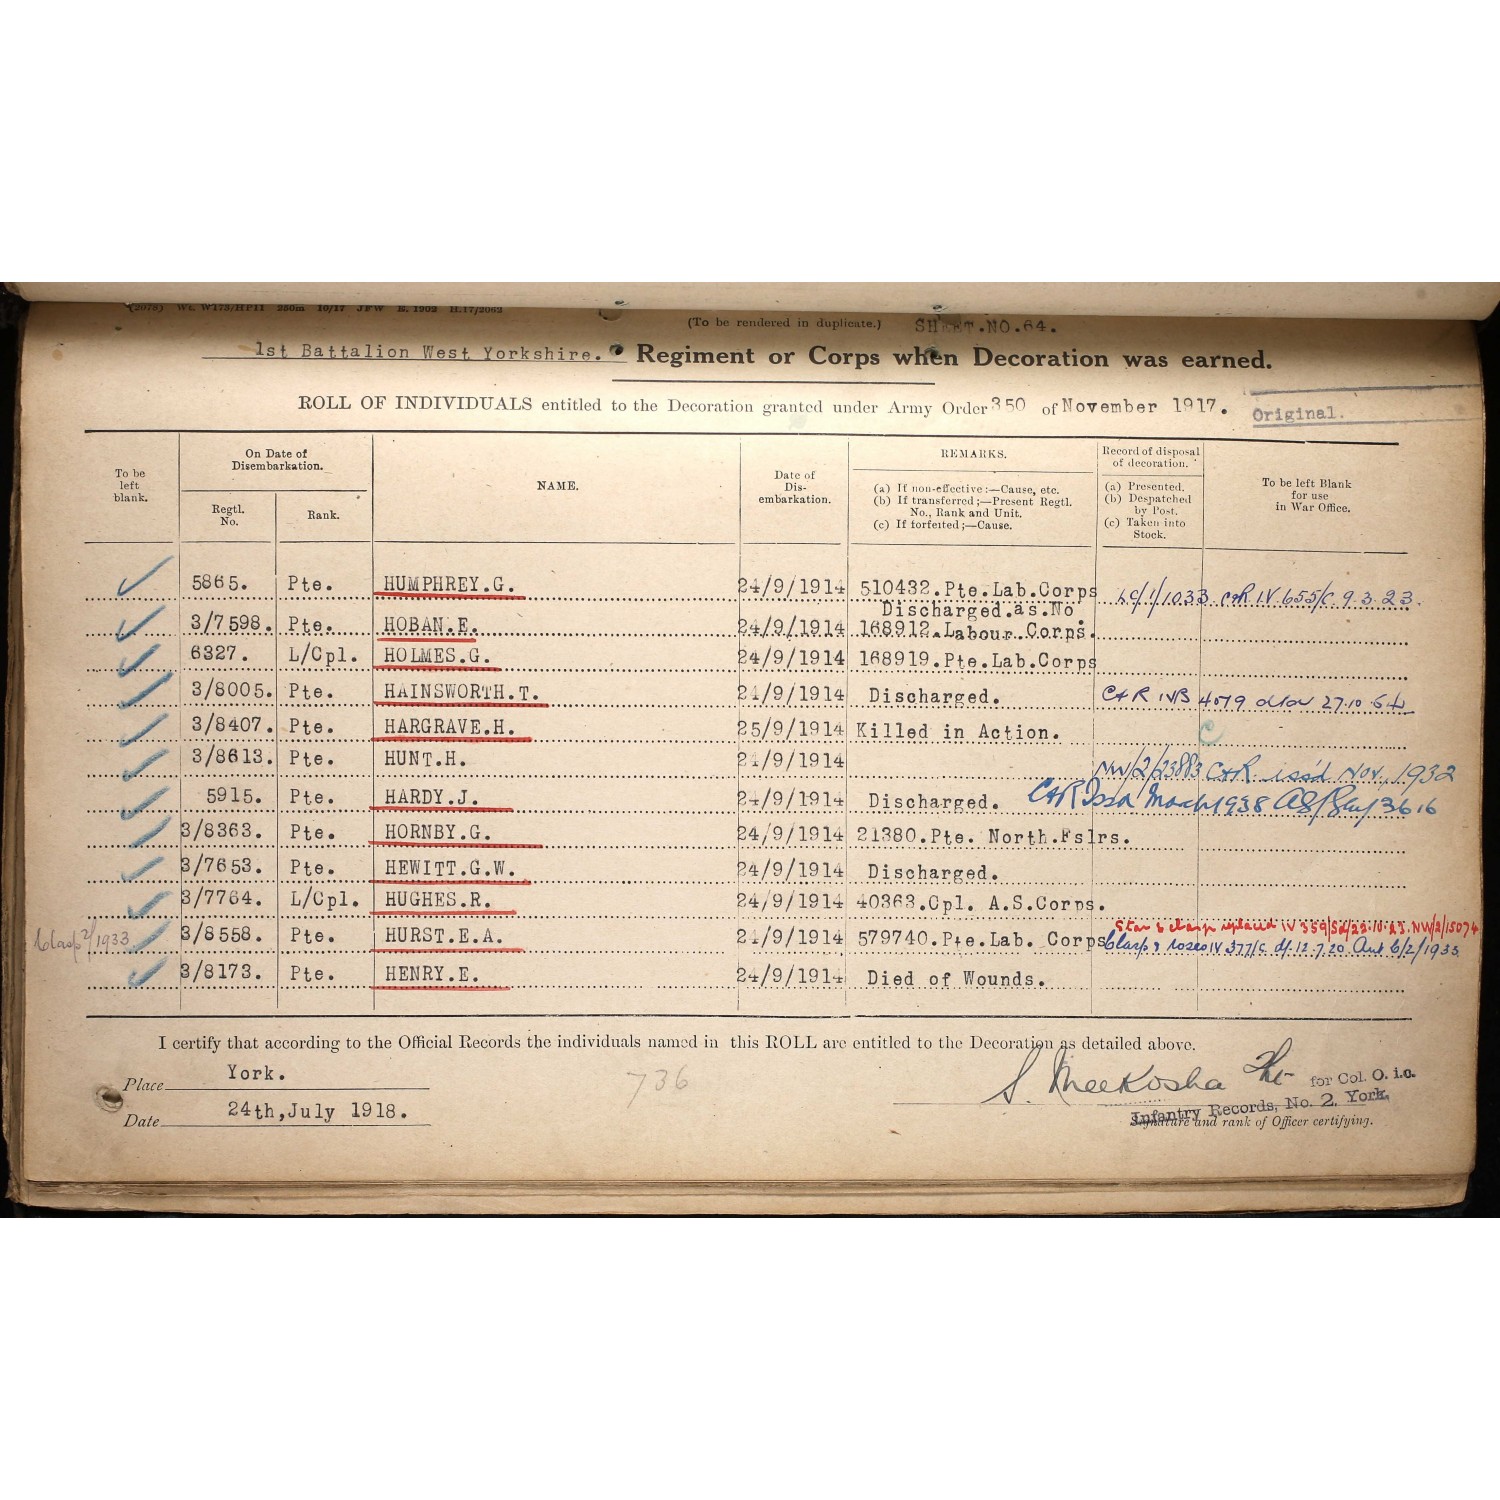 (2078) Wt. W173/HP11 250m 10/17 JPW E. 1902 H.17/2062
(To be rendered in duplicate.) SHEET.NO.64.
1st Battalion West Yorkshire. Regiment or Corps when Decoration was earned.
ROLL OF INDIVIDUALS entitled to the Decoration granted under Army Order 350 of November 1917. Original.
To be left blank.
On Date of Disembarkation.
Regtl. No.
Rank.
NAME.
Date of Dis-embarkation.
REMARKS.
(a) If non-effective:—Cause, etc.
(b) If transferred;—Present Regtl. No., Rank and Unit.
(c) If forfeited;—Cause.
Record of disposal of decoration.
(a) Presented.
(b) Despatched by Post.
(c) Taken into Stock.
To be left Blank for use in War Office.
5865. Pte. HUMPHREY.G. 24/9/1914 510432.Pte.Lab.Corps 1033 C&R IV 655/C 9.3.23.
Discharged.as.No
3/7598. Pte. HOBAN.E. 24/9/1914 168912.Labour.Corps.
6327. L/Cpl. HOLMES.G. 24/9/1914 168919.Pte.Lab.Corps
3/8005. Pte. HAINSWORTH.T. 24/9/1914 Discharged. C&R IVB 4079 27.10.
3/8407. Pte. HARGRAVE.H. 25/9/1914 Killed in Action. C
3/8613. Pte. HUNT.H. 24/9/1914 NW/2/23883 C&R iss'd Nov., 1932
5915. Pte. HARDY.J. 24/9/1914 Discharged. C&R Issd March 1938 3616
3/8363. Pte. HORNBY.G. 24/9/1914 21380.Pte. North.Fslrs.
3/7653. Pte. HEWITT.G.W. 24/9/1914 Discharged.
3/7764. L/Cpl. HUGHES.R. 24/9/1914 40363.Cpl. A.S.Corps.
Star & clasp replaced IV 359/Sd/22.10.23.NW/2/15074
Clasp 2/1933 3/8558. Pte. HURST.E.A. 24/9/1914 579740.Pte.Lab. Corps Clasp & roses IV 377/C. df. 12.7.20. Aut 6/2/1933
3/8173. Pte. HENRY.E. 24/9/1914 Died of Wounds.
I certify that according to the Official Records the individuals named in this ROLL are entitled to the Decoration as detailed above.
Place York.
736
S. Meekosha for Col. O. i.c.
Infantry Records, No. 2. York.
Date 24th,July 1918.
Signature and rank of Officer certifying.